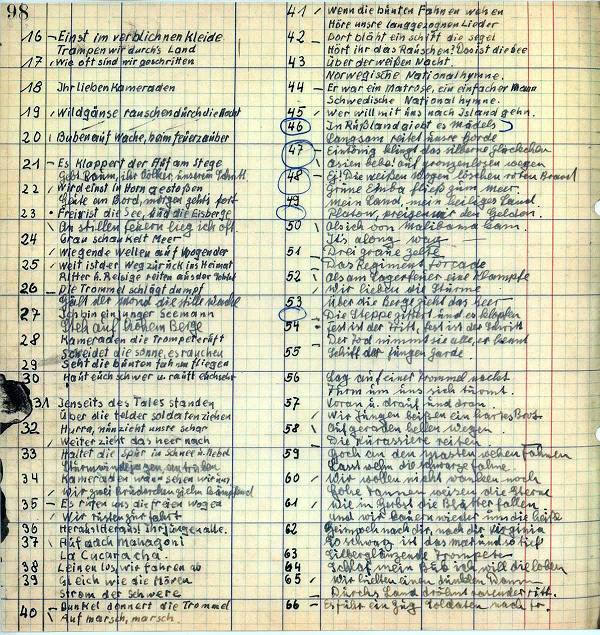 98
16 Einst im verblichnen Kleide
Trampen wir durch's Land
17 Wie oft sind wir geschritten
18 Ihr lieben Kameraden
19 Wildgänse rauschen durch die Nacht
20 Buben auf Wache, beim feuerzauber
21 Es klappert der Huf am Stege
Gebt Raum, ihr Völker, unserm Schritt
22 Wird einst in Horn gestoßen
an Bord, morgen geht's fort
23 Frei ist die See, sind die Eisberge
An stillen feuern lieg ich oft
24 Grau schaukelt Meer
Wiegende Wellen auf wogender
25 Weit ist der Weg zurück ins Heimat
Ritter & Reisige reiten aus der
26 Die Trommel schlägt dumpf
der Mond die stille
27 Ich bin ein junger Seemann
Steh auf hohem Berge
28 Kameraden die Trompete ruft
Scheidet die sonne, es rauchen
29 Seht die bunten fahnen fliegen
30 Haut euch schwer u. rauft euch sehr
31 Jenseits des Tales standen
Über die felder soldaten ziehen
32 Hurra, nun zieht unsre schar
Weiter zieht das heer nach
33 Haltet die Spur in Schnee u. Nebel
34 Kameraden wann sehen wir uns
Wir zwei
35 Es rufen uns die freien wogen
Wir rüsten zur fahrt
36 Heraus Heraus ihr jungen alle
37 Auf nach Mahagoni
La Cucaracha!
38 Leinen los, wir fahren ab
39 Gleich wie die Möven
Strom der Schwere
40 Dunkel donnert die Trommel
Auf marsch, marsch
41 Wenn die bunten Fahnen wehen
Höre unsre langgezognen Lieder
42 Dort bläht ein schiff die segel
Hört ihr das Rauschen? Das ist die See
43 Über der weißen Nacht.
Norwegische Nationalhymne.
44 Er war ein Matrose, ein einfacher Mann
Schwedische Nationalhymne.
45 Wer will mit uns nach Island gehn.
46 In Rußland giebt es Mädels
Langsam reitet unsre Horde
47 Eintönig klingt das silberne Glöckchen
Asien bebe! auf grenzenlosen wegen
48 Ei! Die weißen Wogen löschen roten Brand
Grüne Emba fließ zum meer.
49 Mein Land, mein heiliges Land.
Platow, preisen wir den Helden.
50 Als ich von Malibama kam.
It's a long way
51 Drei graue Zelte
Das Regiment Forcade
52 Als am Lagerfeuer eine Klampfe
Wir lieben die Stürme
53 Über die Berge zieht das Heer
Die Steppe zittert und es klopfen
54 fest ist der Tritt, fest ist der Schritt
Der Tod nimmt sie alle, er kennt
55 Schiff der jungen Garde.
56 Lag auf einer Trommel nackt
Turm um uns sich türmt.
57 Voran u. drauf und dran
Wir jungen beißen ein hartes Brot
58 Auf geraden hellen Wegen.
Die Kürassiere reiten.
59 Hoch an den Masten wehen Fahnen
Lasst wehn die schwarze fahne.
60 Wir wollen nicht wanken noch
Hohe Tannen weisen die Sterne
61 Wie im Herbst die Blätter fallen
Und wir kauern wieder um die heiße
62 nach dir, nach der Virginia
So schwarz ist das
63 Silberglänzende Trompete
64 Schlaf mein Bub ich will dich loben
65 Wir hielten einen dunklen Wann
Durchs Land dröhnt rasender ritt.
66 Es fährt ein Zug Soldaten nach